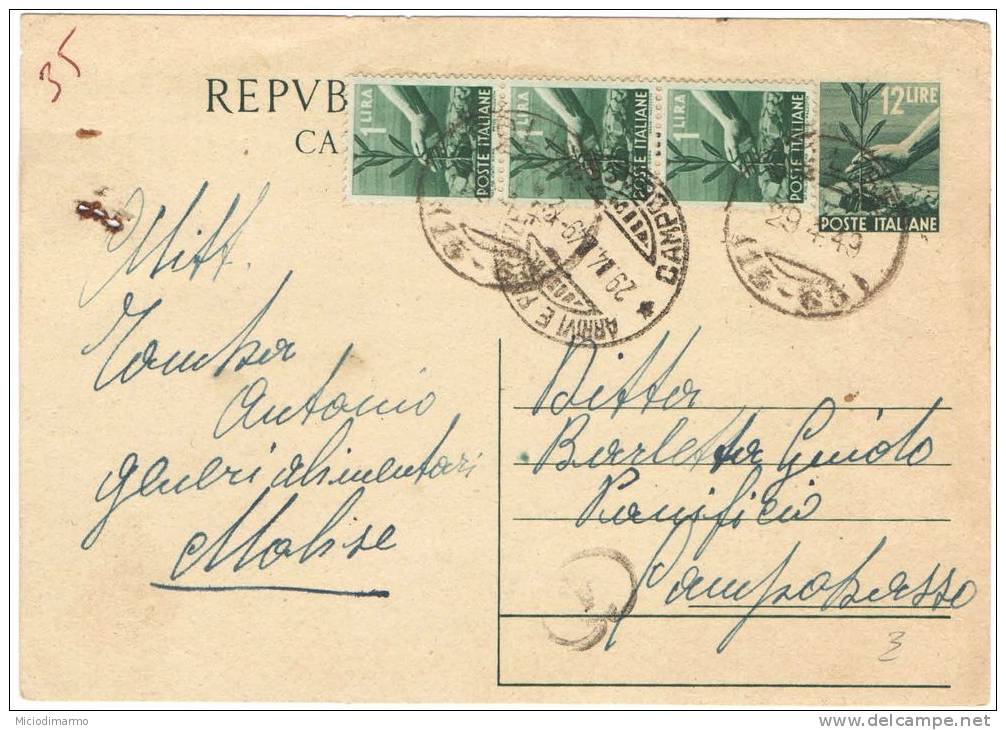 35
REPVB
CA
1 LIRA
POSTE ITALIANE
1 LIRA
POSTE ITALIANE
1 LIRA
POSTE ITALIANE
12 LIRE
POSTE ITALIANE
29.4.49
(15-63)
(15-63)
CAMPOBASSO
ARRIVI E
Mitt.
Antonio
generi alimentari
Molise
Ditta
Barletta Guido
Panificio
Campobasso
3
Miciodimarmo
delcampe.net